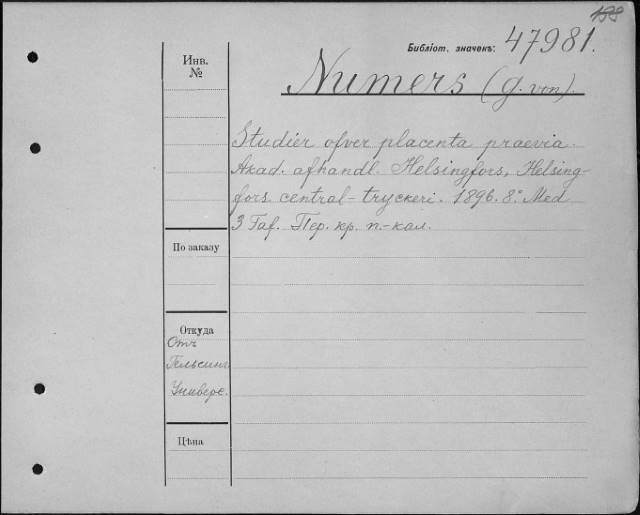 198
Библіот. значекъ: 47981.
Инв.
№
Numers (g. von).
Studier öfver placenta praevia.
Akad. afhandl. Helsingfors, Helsing-
fors central-tryckeri. 1896. 8.° Med
3 Taf. Пер. кр. п.-кал.
По заказу
Откуда
Отъ
Гельсинг.
Универс.
Цѣна